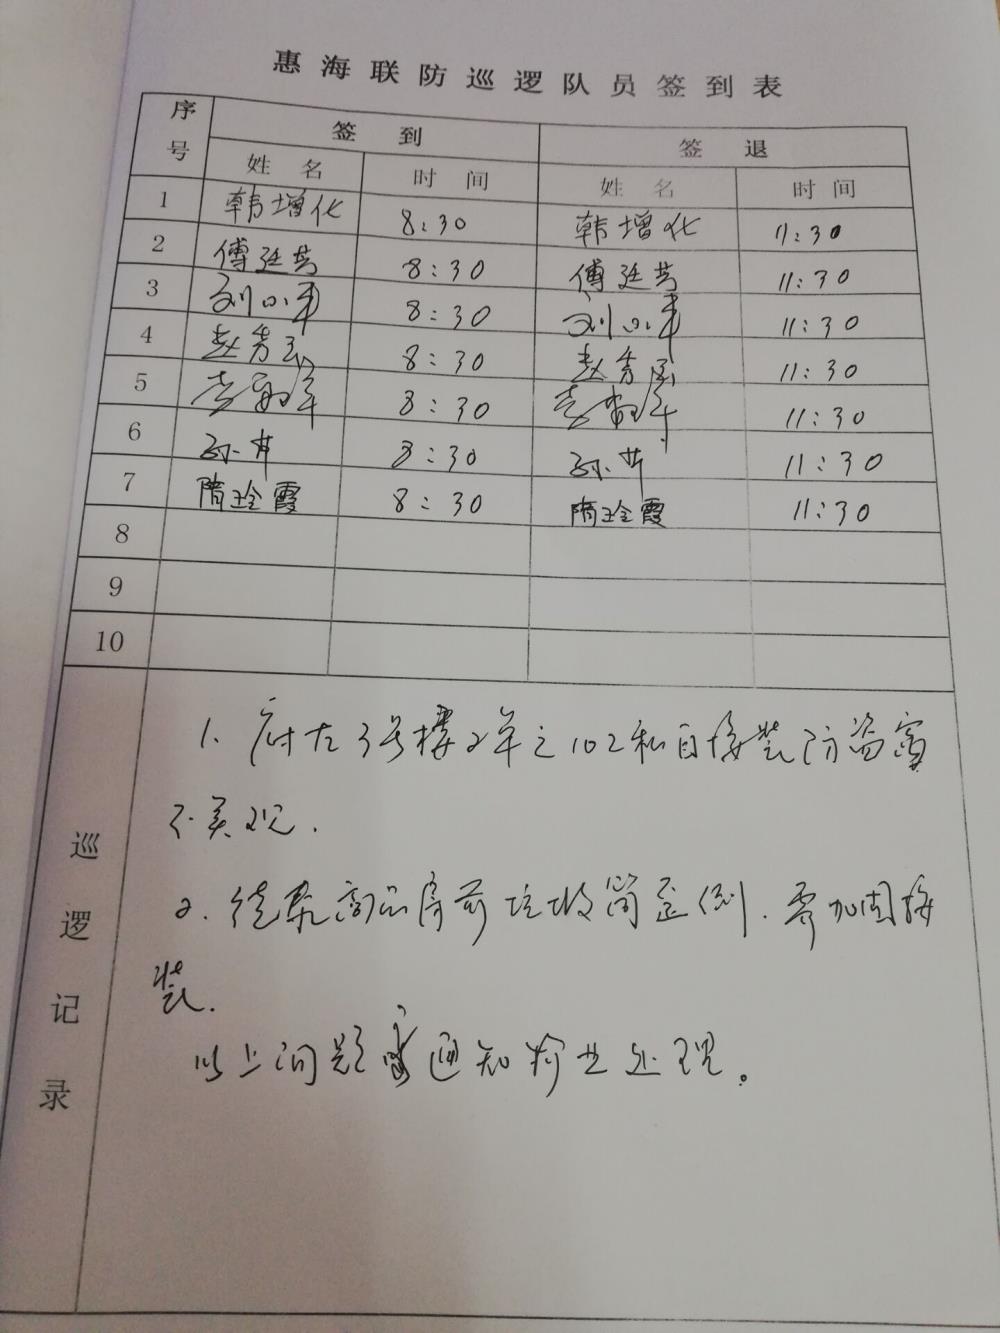 惠海联防巡逻队员签到表
序号 签到 签退
姓名 时间 姓名 时间
1 韩增化 8:30 韩增化 11:30
2 傅廷芸 8:30 傅廷芸 11:30
3 刘小军 8:30 刘小军 11:30
4 赵秀玉 8:30 赵秀玉 11:30
5 8:30 11:30
6 孙井 8:30 孙井 11:30
7 隋玲霞 8:30 隋玲霞 11:30
8
9
10
巡逻记录
1、府左3号楼2单元102私自按装防盗窗
不美观.
2. 商品房前垃圾筒歪倒.需加固按
装.
以上问题通知物业处理。